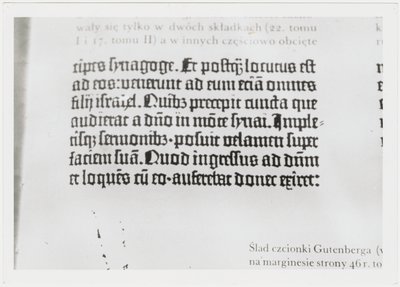 wały się tylko w dwóch składkach (22. tomu
I i 17. tomu II) a w innych częściowo obcięte
cipes synagoge. Et postq̃ȝ locutus est
ad eos: venerunt ad eum eciã omnes
filij israel. Quibȝ precepit cuncta que
audierat a dño in mõte synai. Imple-
tisqȝ sermonibȝ·posuit velamen super
faciem suã. Quod ingressus ad dñm
et loquẽs cũ eo·auferebat donec exiret:
Ślad czcionki Gutenberga
na marginesie strony 46 r. to